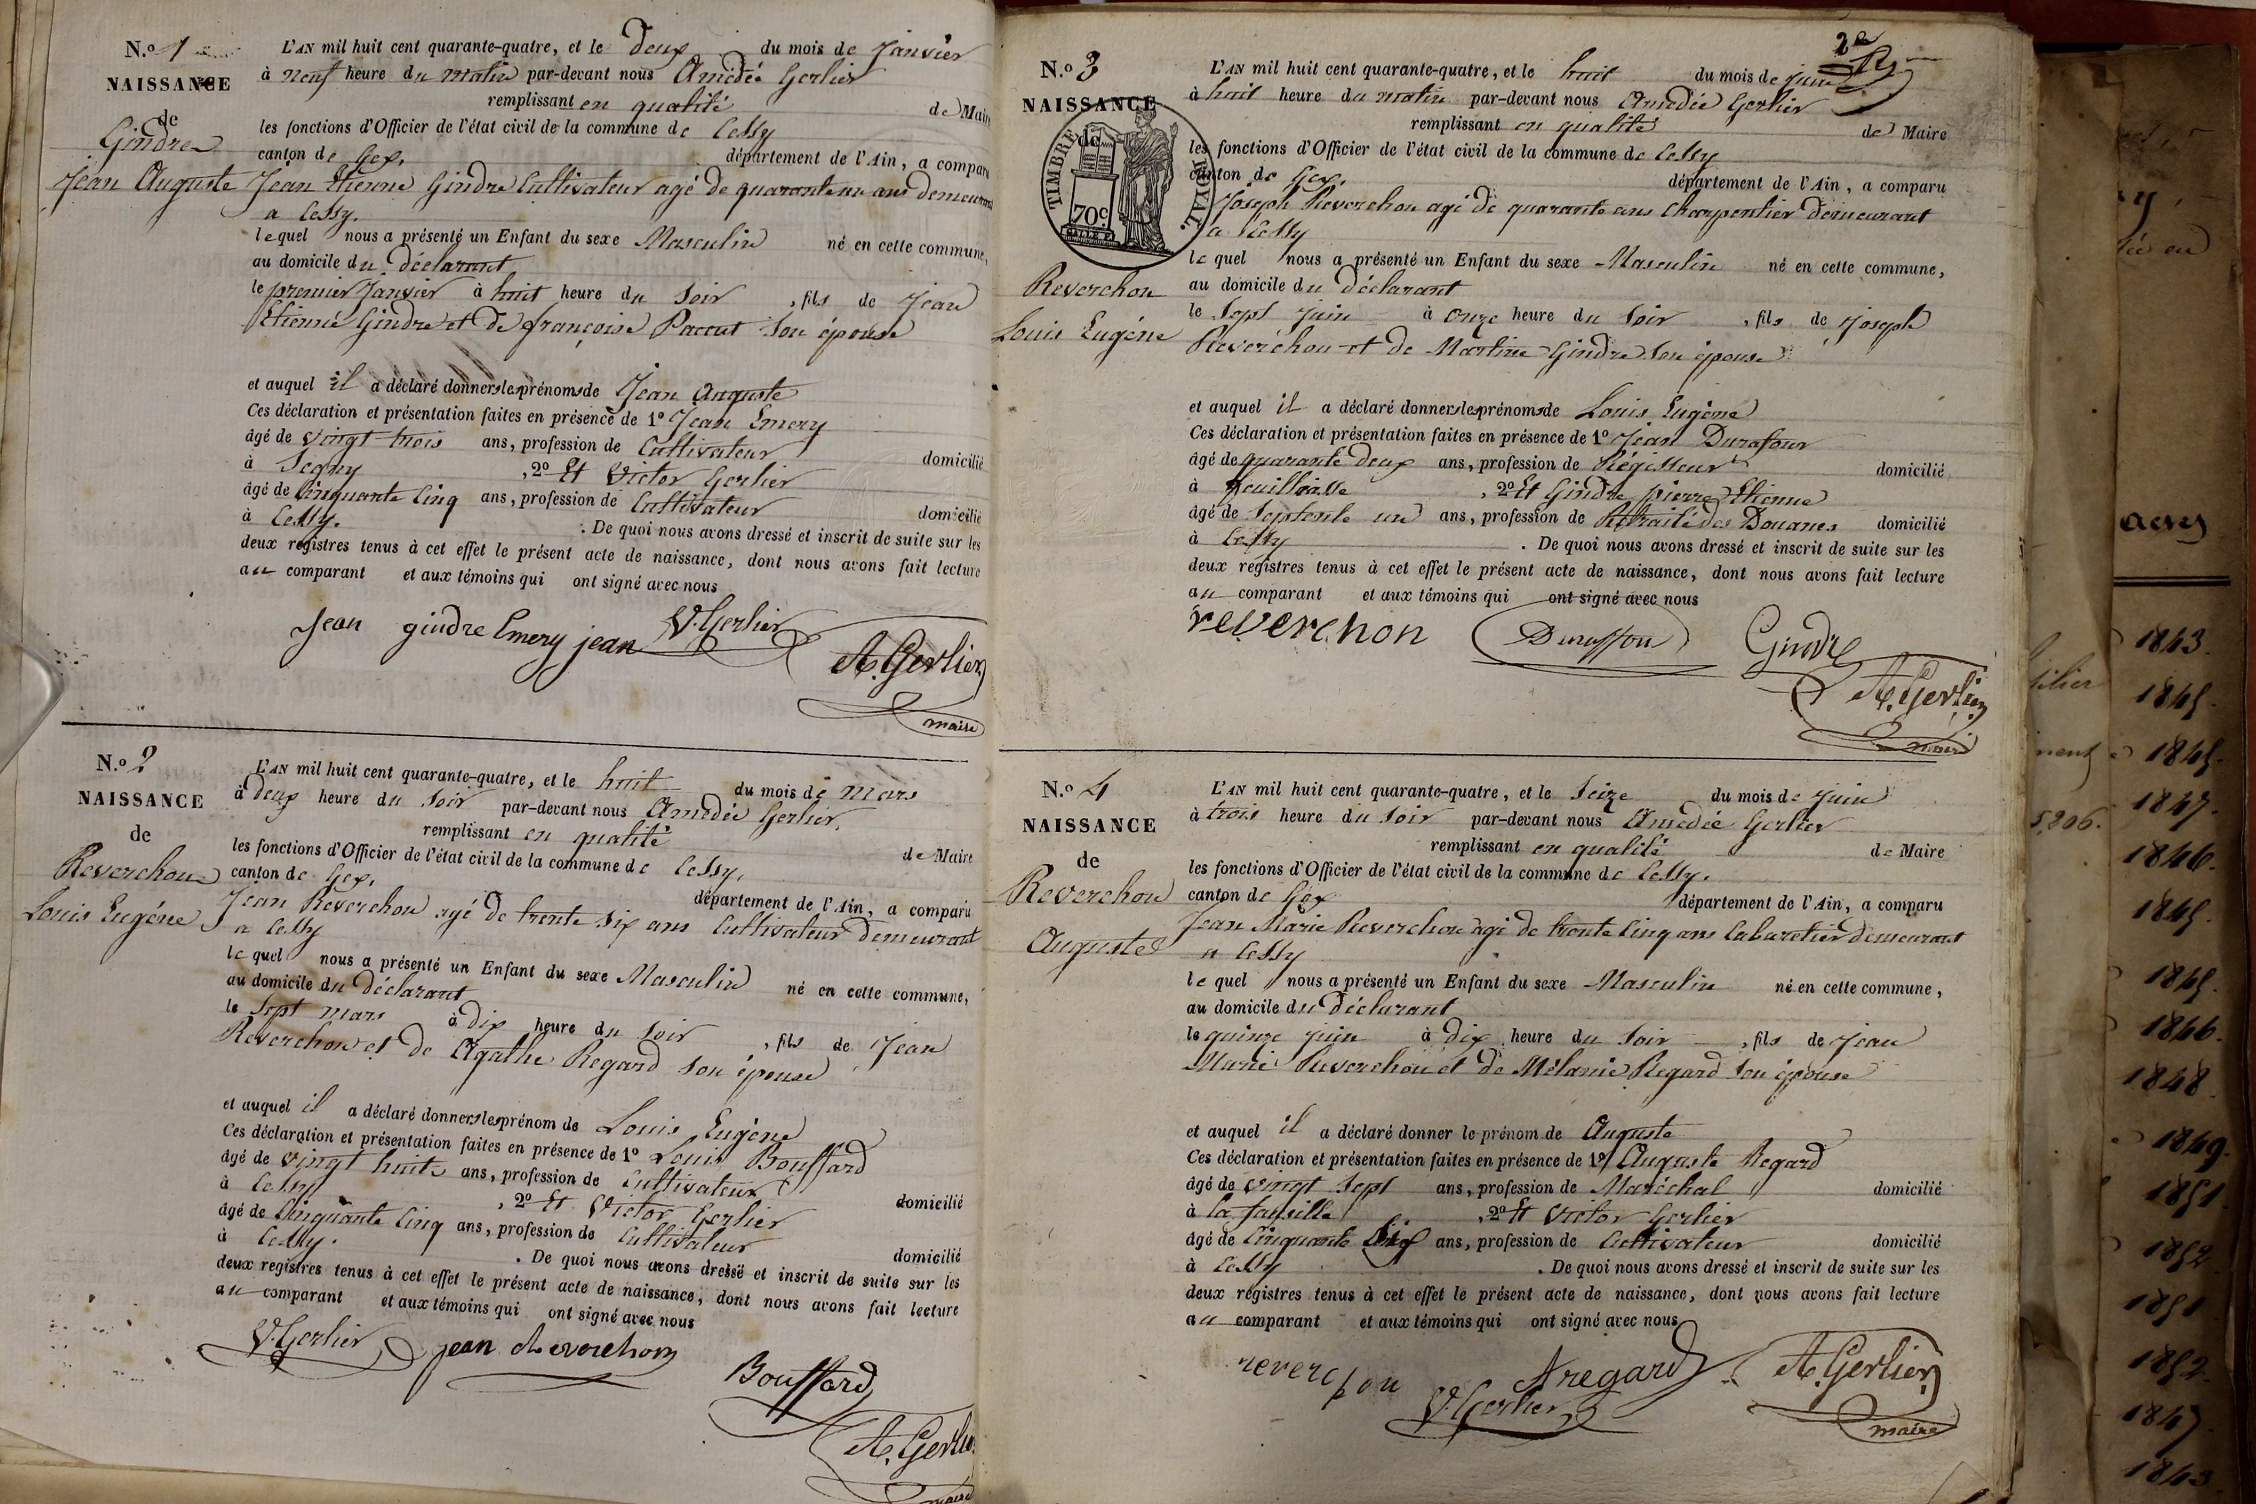 N.º 1
NAISSANCE
de
Gindre
Jean Auguste
L'AN mil huit cent quarante-quatre, et le deux du mois de Janvier
à neuf heure du matin par-devant nous Amédée Gerlier
remplissant en qualité de Maire
les fonctions d'Officier de l'état civil de la commune de Cessy
canton de Gex, département de l'Ain, a comparu
Jean Etienne Gindre Cultivateur agé de quarante un ans demeurant
a Cessy.
lequel nous a présenté un Enfant du sexe Masculin né en cette commune,
au domicile du déclarant
le premier Janvier à huit heure du soir, fils de Jean
Etienne Gindre et de françoise Paccut son épouse
et auquel il a déclaré donner les prénoms de Jean Auguste
Ces déclaration et présentation faites en présence de 1º Jean Emery
âgé de vingt trois ans, profession de Cultivateur domicilié
à Segny, 2º Et Victor Gerlier
âgé de Cinquante Cinq ans, profession de Cultivateur domicilié
à Cessy. . De quoi nous avons dressé et inscrit de suite sur les
deux registres tenus à cet effet le présent acte de naissance, dont nous avons fait lecture
au comparant et aux témoins qui ont signé avec nous
Jean gindre Emery jean V. Gerlier
A. Gerlier
maire
N.º 2
NAISSANCE
de
Reverchon
Louis Eugéne
L'AN mil huit cent quarante-quatre, et le huit du mois de Mars
à deux heure du soir par-devant nous Amédée Gerlier,
remplissant en qualité de Maire
les fonctions d'Officier de l'état civil de la commune de Cessy,
canton de Gex, département de l'Ain, a comparu
Jean Reverchon agé de trente six ans Cultivateur demeurant
a Cessy
lequel nous a présenté un Enfant du sexe Masculin né en cette commune,
au domicile du déclarant
le Sept mars à dix heure du soir, fils de Jean
Reverchon et de Agathe Regard son épouse
et auquel il a déclaré donner les prénom de Louis Eugéne
Ces déclaration et présentation faites en présence de 1º Louis Bouffard
âgé de vingt huit ans, profession de Cultivateur domicilié
à Cessy, 2º Et Victor Gerlier
âgé de Cinquante Cinq ans, profession de Cultivateur domicilié
à Cessy. . De quoi nous avons dressé et inscrit de suite sur les
deux registres tenus à cet effet le présent acte de naissance, dont nous avons fait lecture
au comparant et aux témoins qui ont signé avec nous
V. Gerlier jean Reverchon
Bouffard
A. Gerlier
maire
2e
N.º 3
NAISSANCE
de
TIMBRE ROYAL
70c
Reverchon
Louis Eugéne
L'AN mil huit cent quarante-quatre, et le huit du mois de juin
à huit heure du matin par-devant nous Amédée Gerlier
remplissant en qualité de Maire
les fonctions d'Officier de l'état civil de la commune de Cessy
canton de Gex, département de l'Ain, a comparu
Joseph Reverchon agé de quarante ans Charpentier demeurant
a Cessy
lequel nous a présenté un Enfant du sexe Masculin né en cette commune,
au domicile du déclarant
le Sept juin à onze heure du soir, fils de Joseph
Reverchon et de Martine Gindre son épouse
et auquel il a déclaré donner les prénoms de Louis Eugéne
Ces déclaration et présentation faites en présence de 1º Jean Durafour
âgé de quarante deux ans, profession de Régisseur domicilié
à, 2º Et Gindre pierre Etienne
âgé de Septente un ans, profession de Retraité des Douanes domicilié
à Cessy . De quoi nous avons dressé et inscrit de suite sur les
deux registres tenus à cet effet le présent acte de naissance, dont nous avons fait lecture
au comparant et aux témoins qui ont signé avec nous
reverchon Gindre
A. Gerlier
maire
N.º 4
NAISSANCE
de
Reverchon
Auguste
L'AN mil huit cent quarante-quatre, et le Seize du mois de juin
à trois heure du soir par-devant nous Amédée Gerlier
remplissant en qualité de Maire
les fonctions d'Officier de l'état civil de la commune de Cessy.
canton de Gex département de l'Ain, a comparu
Jean Marie Reverchon agé de trente Cinq ans Cabaretier demeurant
a Cessy
lequel nous a présenté un Enfant du sexe Masculin né en cette commune,
au domicile du déclarant
le quinze juin à dix heure du soir, fils de Jean
Marie Reverchon et de Mélanie Regard son épouse
et auquel il a déclaré donner le prénom de Auguste
Ces déclaration et présentation faites en présence de 1º Auguste Regard
âgé de vingt Sept ans, profession de Maréchal domicilié
à la faucille, 2º Et Victor Gerlier
âgé de Cinquante Cinq ans, profession de Cultivateur domicilié
à Cessy . De quoi nous avons dressé et inscrit de suite sur les
deux registres tenus à cet effet le présent acte de naissance, dont nous avons fait lecture
au comparant et aux témoins qui ont signé avec nous
reverchon Aregard A. Gerlier
V. Gerlier
maire
1843.
1845.
1845.
1847.
5,206.
1846.
1845.
1845.
1846.
1848.
1849.
1851.
1852.
1851.
1852.
1847.
1843